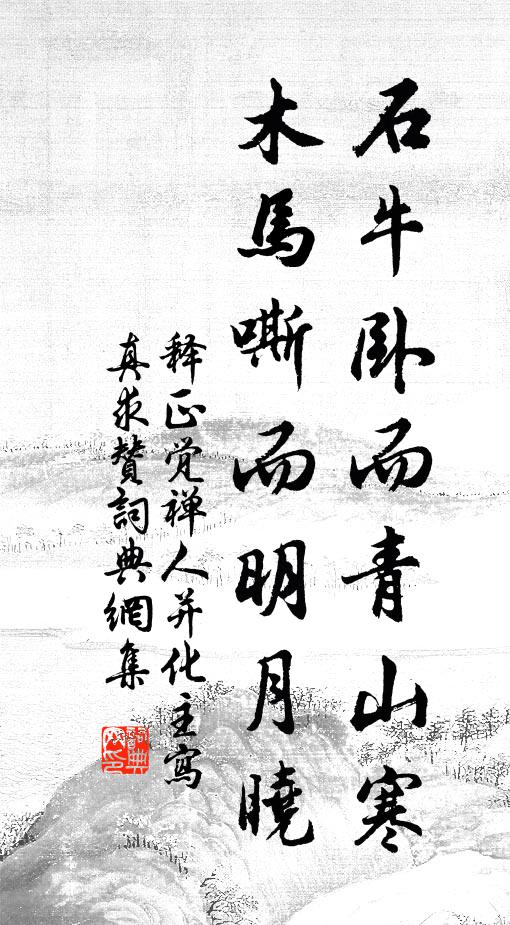 石牛卧而青山寒
木馬嘶而明月曉
释正覚禅人并化主寫
真求賛詞典網集